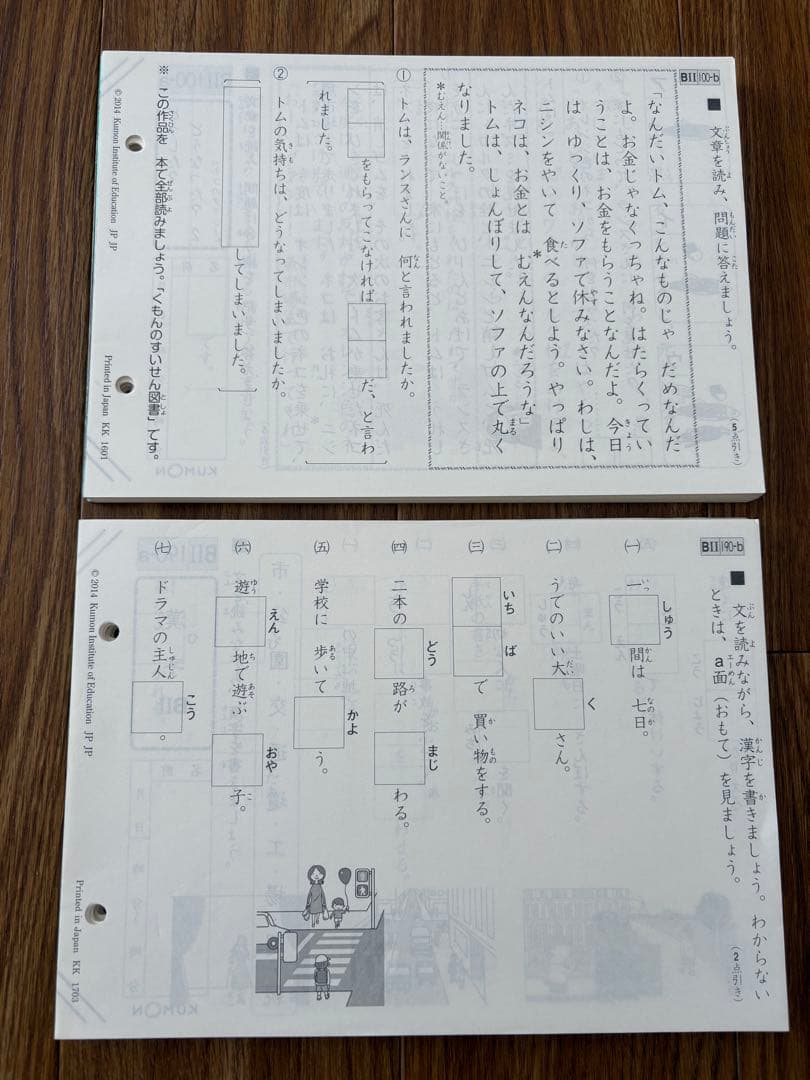 BII 100-b
■ 文章を読み、問題に答えましょう。
(5点引き)
「なんだいトム、こんなものじゃ だめなんだ
よ。お金じゃなくっちゃね。はたらくってい
うことは、お金をもらうことなんだよ。今日
は ゆっくり、ソファで休みなさい。わしは、
ニシンをやいて 食べるとしよう。やっぱり
ネコは、お金とは *むえんなんだろうな」
トムは、しょんぼりして、ソファの上で丸く
なりました。
*むえん…関係がないこと。
① トムは、ランスさんに 何と言われましたか。
をもらってこなければ だ、と言わ
れました。
② トムの気持ちは、どうなってしまいましたか。
してしまいました。
※ この作品を 本で全部読みましょう。「くもんのすいせん図書」です。
© 2014 Kumon Institute of Education JP JP
Printed in Japan KK 1601
BII 190-b
■ 文を読みながら、漢字を書きましょう。わからない
ときは、a面(おもて)を見ましょう。
(2点引き)
㈠ 一しゅう間は 七日。
㈡ うでのいい大くさん。
㈢ いちばで 買い物をする。
㈣ 二本の どう路が まじわる。
㈤ 学校に 歩いて かよう。
㈥ 遊えん地で遊ぶ おや子。
㈦ ドラマの主人こう。
© 2014 Kumon Institute of Education JP JP
Printed in Japan KK 1703